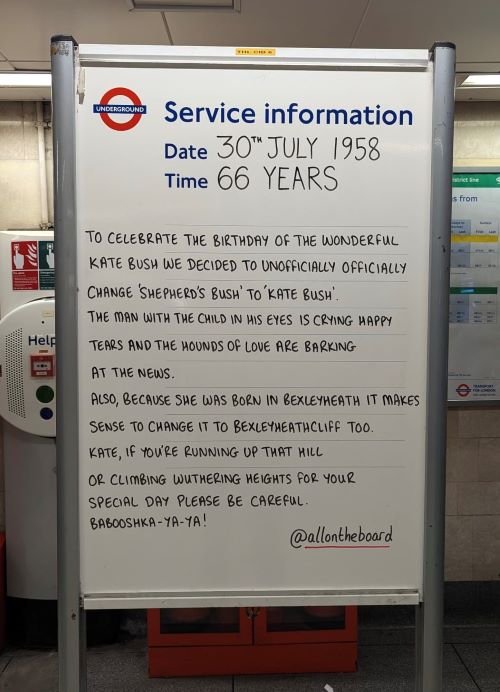 UNDERGROUND
Service information
Date 30TH JULY 1958
Time 66 YEARS
TO CELEBRATE THE BIRTHDAY OF THE WONDERFUL
KATE BUSH WE DECIDED TO UNOFFICIALLY OFFICIALLY
CHANGE 'SHEPHERD'S BUSH' TO 'KATE BUSH'.
THE MAN WITH THE CHILD IN HIS EYES IS CRYING HAPPY
TEARS AND THE HOUNDS OF LOVE ARE BARKING
AT THE NEWS.
ALSO, BECAUSE SHE WAS BORN IN BEXLEYHEATH IT MAKES
SENSE TO CHANGE IT TO BEXLEYHEATHCLIFF TOO.
KATE, IF YOU'RE RUNNING UP THAT HILL
OR CLIMBING WUTHERING HEIGHTS FOR YOUR
SPECIAL DAY PLEASE BE CAREFUL.
BABOOSHKA-YA-YA!
@allontheboard
Help
strict line
s from
TRANSPORT
FOR LONDON